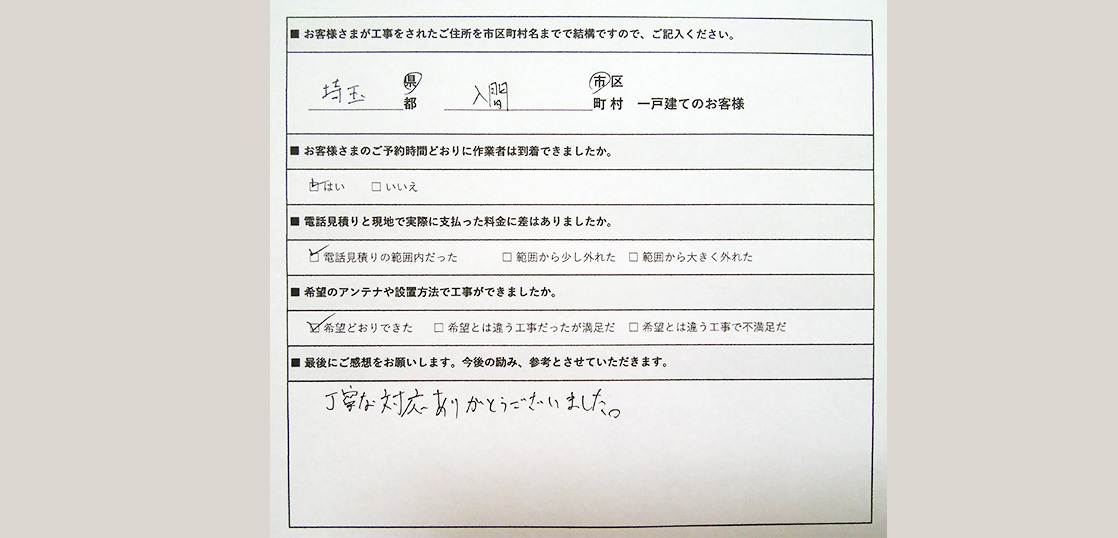 ■ お客様さまが工事をされたご住所を市区町村名までで結構ですので、ご記入ください。
埼玉 県都 入間 市区町村 一戸建てのお客様
■ お客様さまのご予約時間どおりに作業者は到着できましたか。
☑ はい □ いいえ
■ 電話見積りと現地で実際に支払った料金に差はありましたか。
☑ 電話見積りの範囲内だった □ 範囲から少し外れた □ 範囲から大きく外れた
■ 希望のアンテナや設置方法で工事ができましたか。
☑ 希望どおりできた □ 希望とは違う工事だったが満足だ □ 希望とは違う工事で不満足だ
■ 最後にご感想をお願いします。今後の励み、参考とさせていただきます。
丁寧な対応ありがとうございました。